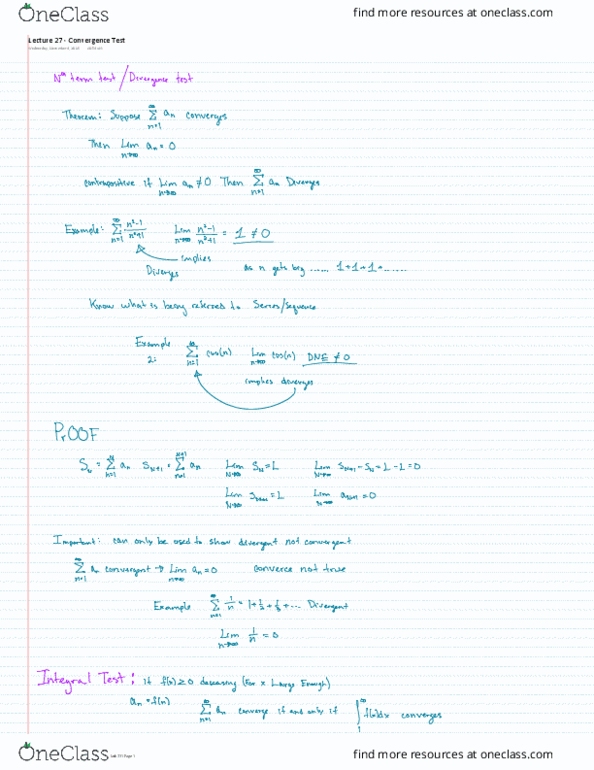 OneClass
find more resources at oneclass.com
Lecture 27 - Convergence Test
Nth term test / Divergence test
Theorem: Suppose ∞ Σ n=1 an converges
Then Lim n→∞ an = 0
contrapositive if Lim n→∞ an ≠ 0 Then ∞ Σ n=1 an Diverges
Example: ∞ Σ n=1 n²-1/n²+1 Lim n→∞ n²-1/n²+1 = 1 ≠ 0
implies
Diverges as n gets big ...... 1+1+1+.......
Know what is being referred to Series/Sequence
Example 2: ∞ Σ n=1 cos(n) Lim n→∞ cos(n) DNE ≠ 0
implies diverges
PROOF
SN = N Σ n=1 an SN+1 = N+1 Σ n=1 an Lim N→∞ SN = L Lim N→∞ SN+1 - SN = L - L = 0
Lim N→∞ SN+1 = L Lim N→∞ aN+1 = 0
Important: can only be used to show divergent not convergent
∞ Σ n=1 an convergent → Lim n→∞ an = 0 converce not true
Example ∞ Σ n=1 1/n = 1+1/2+1/3+... Divergent
Lim n→∞ 1/n = 0
Integral Test: if f(x) ≥ 0 decreasing (For x Large Enough)
an = f(n) ∞ Σ n=1 an converge if and only if ∫ ∞ 1 f(x)dx converges
OneClass
Page 1
find more resources at oneclass.com